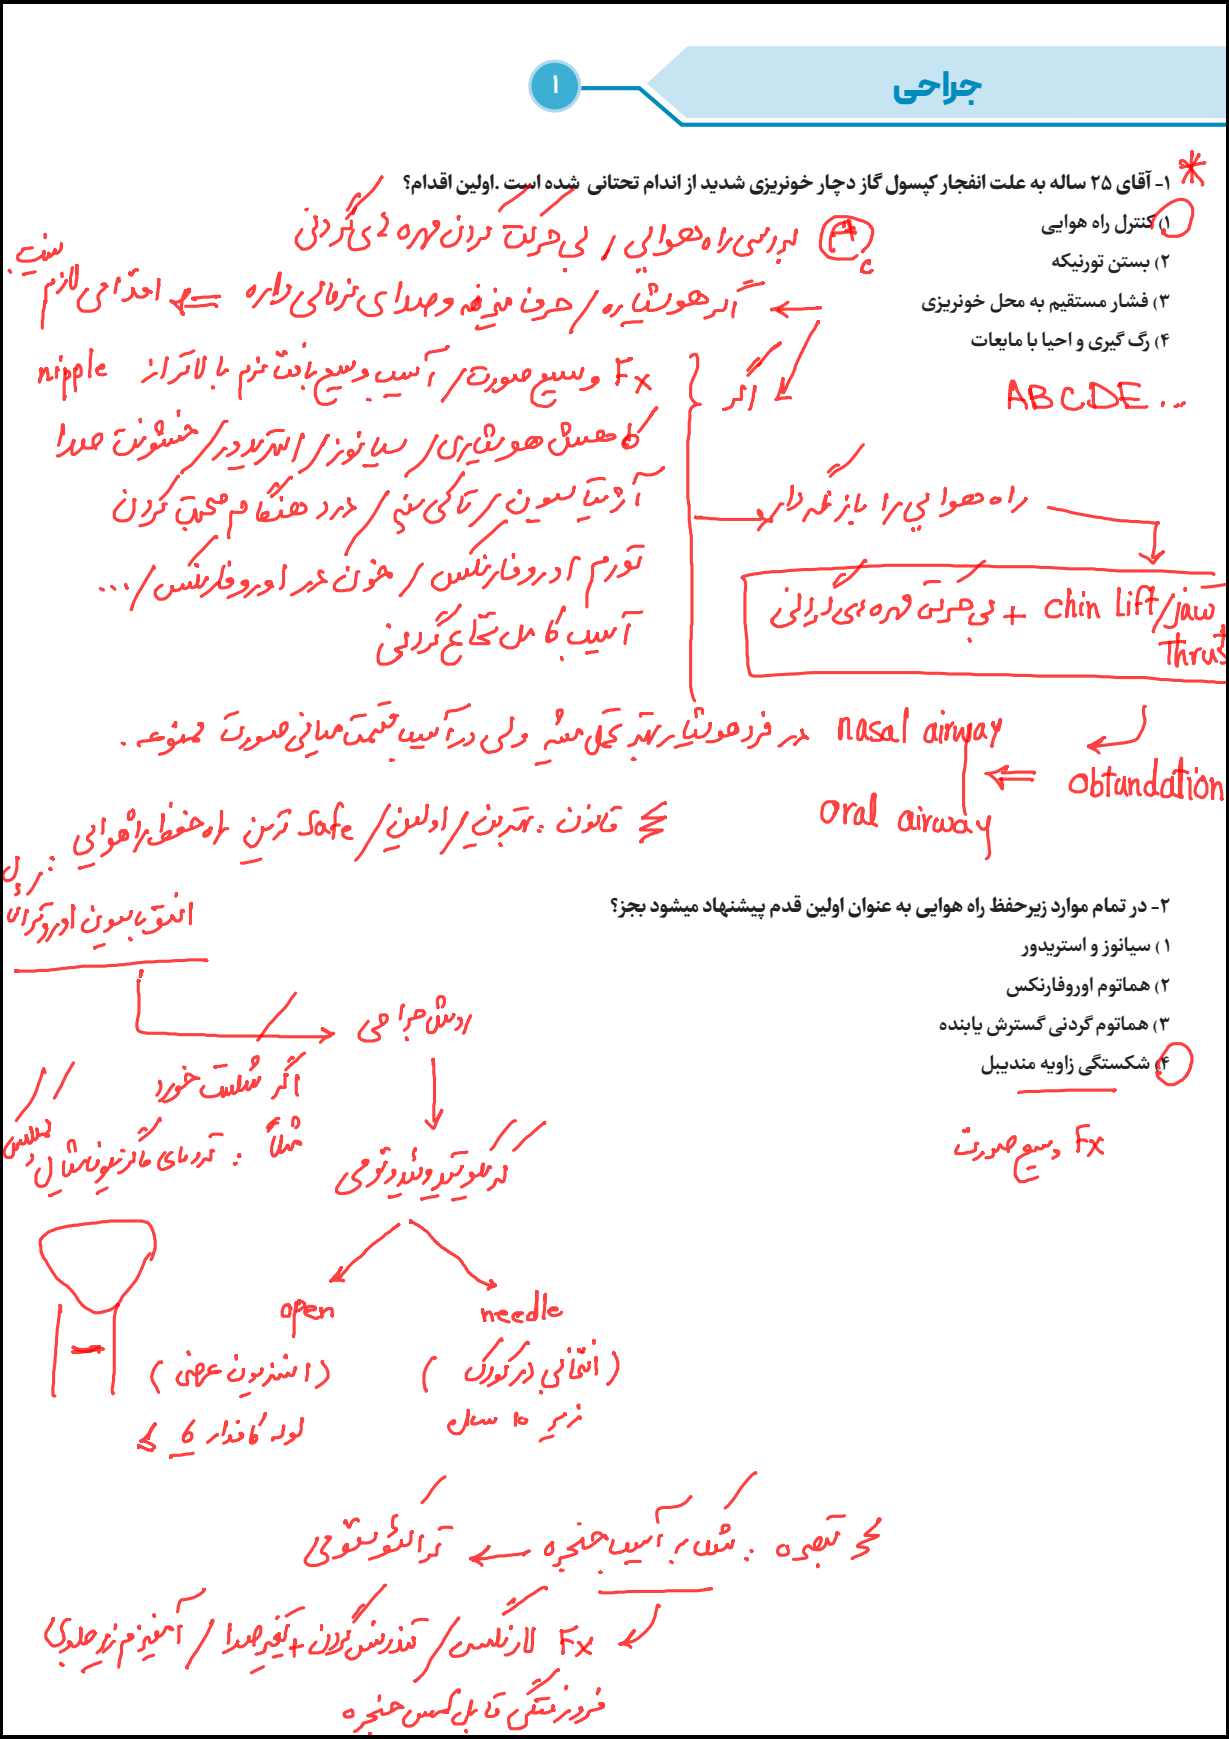 جراحی
۱
۱- آقای ۲۵ ساله به علت انفجار کپسول گاز دچار خونریزی شدید از اندام تحتانی شده است .اولین اقدام؟
۱) کنترل راه هوایی
۲) بستن تورنیکه
۳) فشار مستقیم به محل خونریزی
۴) رگ گیری و احیا با مایعات
ABCDE ...
A c بررسی راه هوایی / بی حرکت کردن مهره های گردنی
اگر هوشیاره / حرف میزنه و صدای نرمالی داره ⇐ اقدامی لازم نیست.
اگر
Fx وسیع صورت / آسیب وسیع بافت نرم بالاتر از nipple
کاهش هوشیاری / سیانوز / استریدور / خشونت صدا
آژیتاسیون / تاکی پنه / درد هنگام صحبت کردن
تورم اوروفارنکس / خون در اوروفارنکس / ...
آسیب کامل نخاع گردنی
راه هوایی را باز نگه دارید
chin lift / jaw thrust + بی حرکتی مهره های گردنی
obtundation
nasal airway در فرد هوشیار بهتر تحمل میشه ولی در آسیب قسمت میانی صورت ممنوعه.
oral airway
قانون : بهترین / اولین / safe ترین راه حفظ راه هوایی :
انتوباسیون اوروتراکئال
۲- در تمام موارد زیرحفظ راه هوایی به عنوان اولین قدم پیشنهاد میشود بجز؟
۱) سیانوز و استریدور
۲) هماتوم اوروفارنکس
۳) هماتوم گردنی گسترش یابنده
۴) شکستگی زاویه مندیبل
Fx وسیع صورت
روش جراحی
اگر شکست خورد
مثلاً : ترومای ماگزیلوفاشیال
کریکوتیروئیدوتومی
open
needle
(انتخابی در کودک)
زیر ۱۰ سال
(انسزیون عرضی)
لوله کافدار 6
تبصره : شک به آسیب حنجره ← تراکئوستومی
Fx لارنکس / تندرنس گردن + تغییر صدا / آمفیزم زیر جلدی
فرورفتگی قابل لمس حنجره